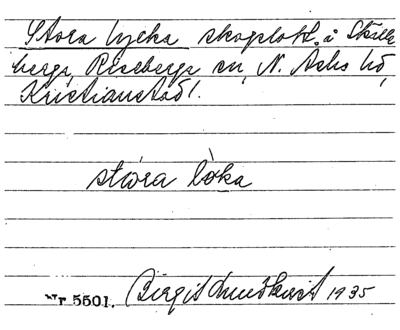 Stora lycka skogslott. i Skille
berga, Riseberga sn, N. Åsbo hd,
Kristianstad l.
stóra lòka
Nr 5501. Birgit Lundkvist 1935